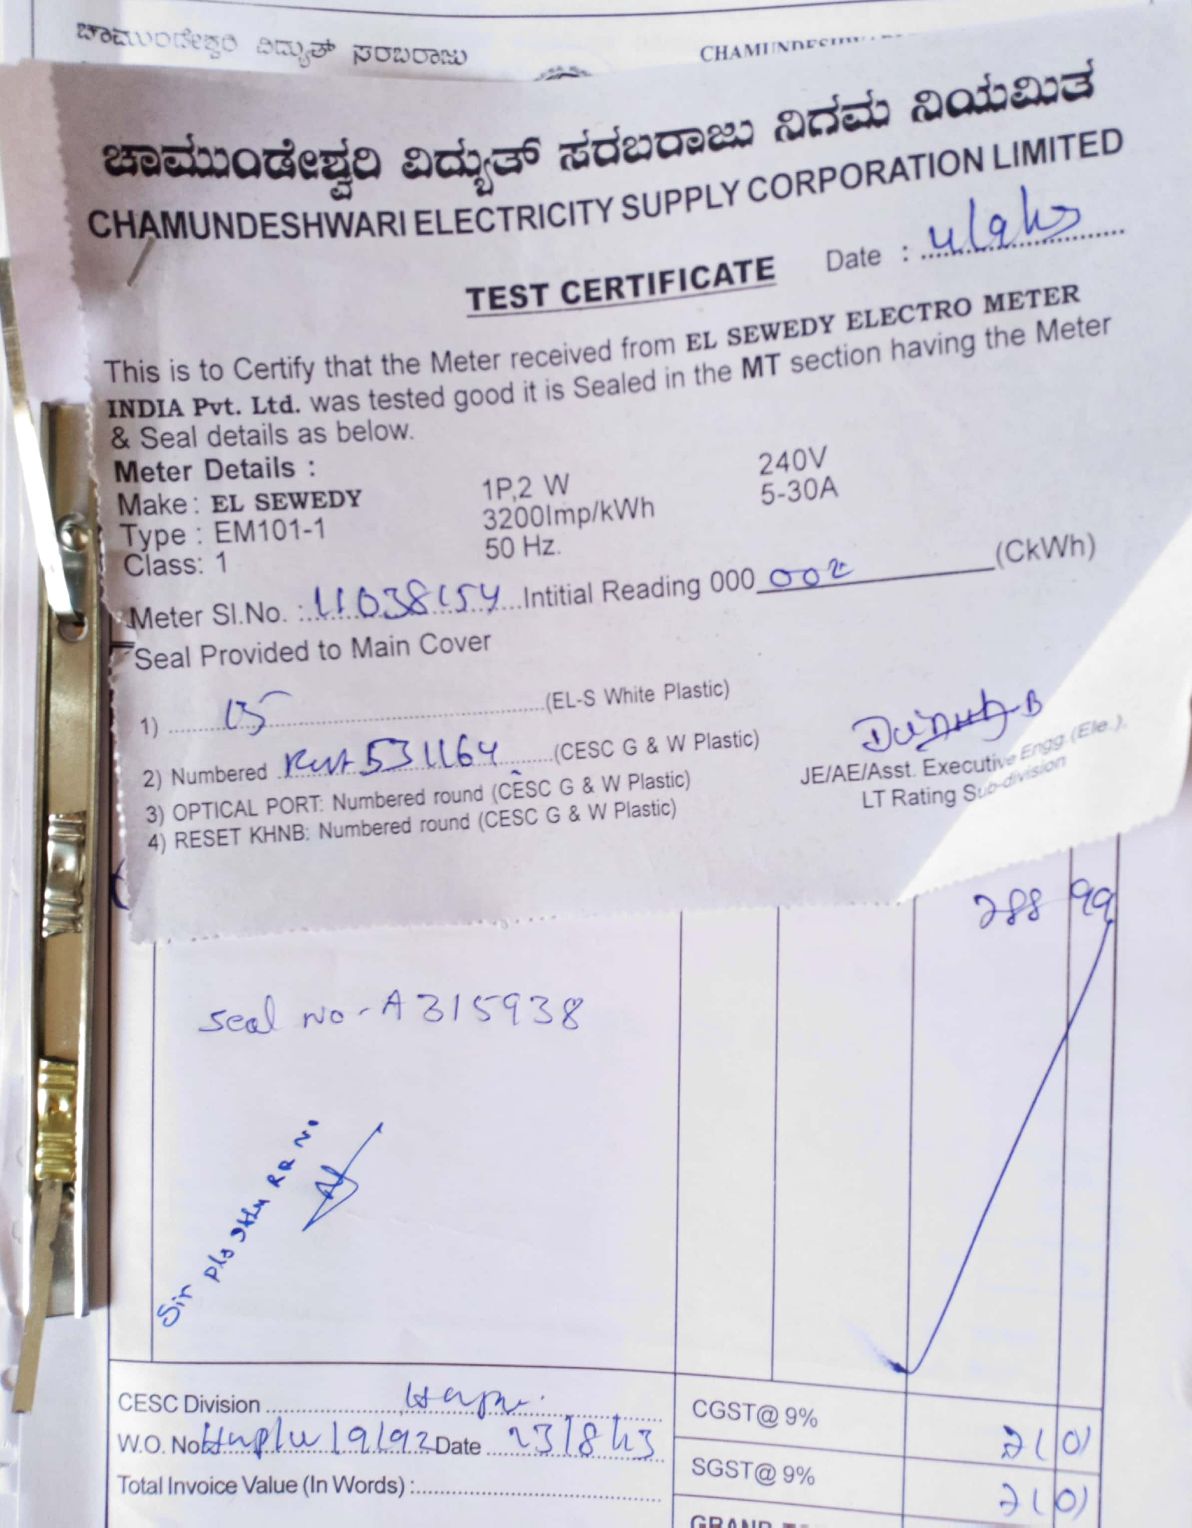 ಚಾಮುಂಡೇಶ್ವರಿ ವಿದ್ಯುತ್ ಸರಬರಾಜು
ಚಾಮುಂಡೇಶ್ವರಿ ವಿದ್ಯುತ್ ಸರಬರಾಜು ನಿಗಮ ನಿಯಮಿತ
CHAMUNDESHWARI ELECTRICITY SUPPLY CORPORATION LIMITED
Date :
TEST CERTIFICATE
This is to Certify that the Meter received from EL SEWEDY ELECTRO METER
INDIA Pvt. Ltd. was tested good it is Sealed in the MT section having the Meter
& Seal details as below.
Meter Details :
Make : EL SEWEDY 1P,2 W 240V
Type : EM101-1 3200Imp/kWh 5-30A
Class: 1 50 Hz.
Meter Sl.No. : 11038154 Intitial Reading 000 002 (CkWh)
Seal Provided to Main Cover
1) 15 (EL-S White Plastic)
2) Numbered 531164 (CESC G & W Plastic)
3) OPTICAL PORT: Numbered round (CESC G & W Plastic)
4) RESET KHNB: Numbered round (CESC G & W Plastic)
JE/AE/Asst. Executive Engg. (Ele.),
LT Rating Sub-division
288 99
Seal no - A 315938
Sir pls RR No
CESC Division
W.O. No Date 23/8/13
Total Invoice Value (In Words) :
CGST@ 9%
SGST@ 9%